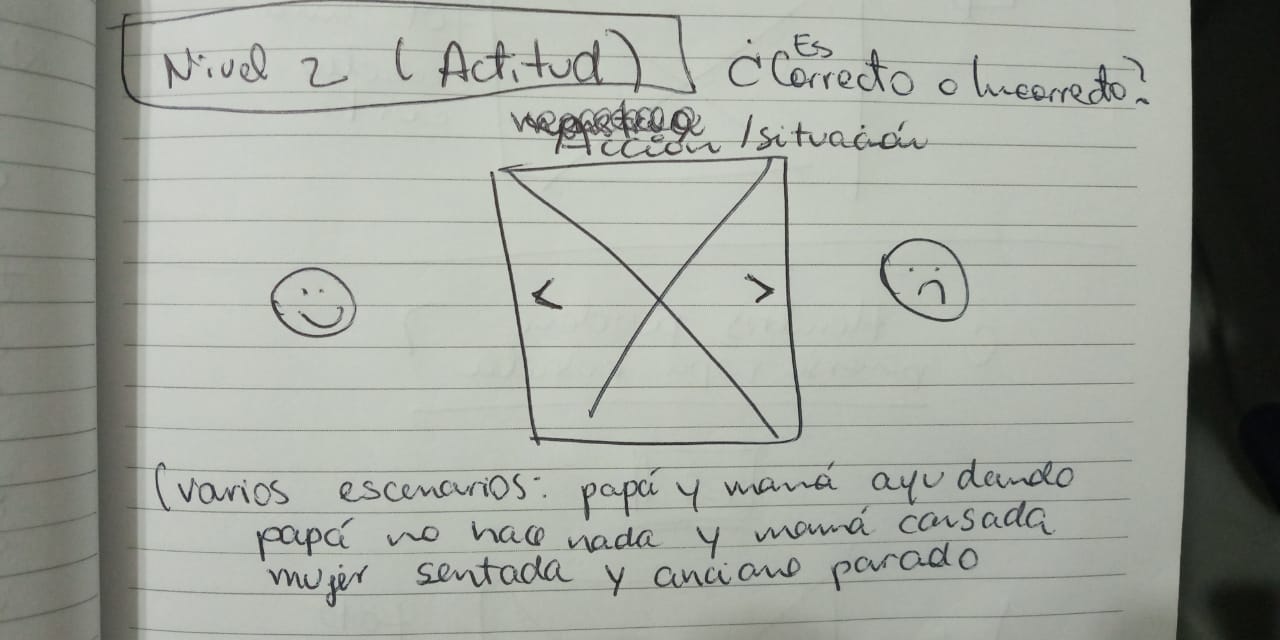 Nivel 2 (Actitud)
¿Es Correcto o Incorrecto?
Acción /situación
< >
(varios escenarios: papá y mamá ayudando
papá no hace nada y mamá cansada
mujer sentada y anciano parado